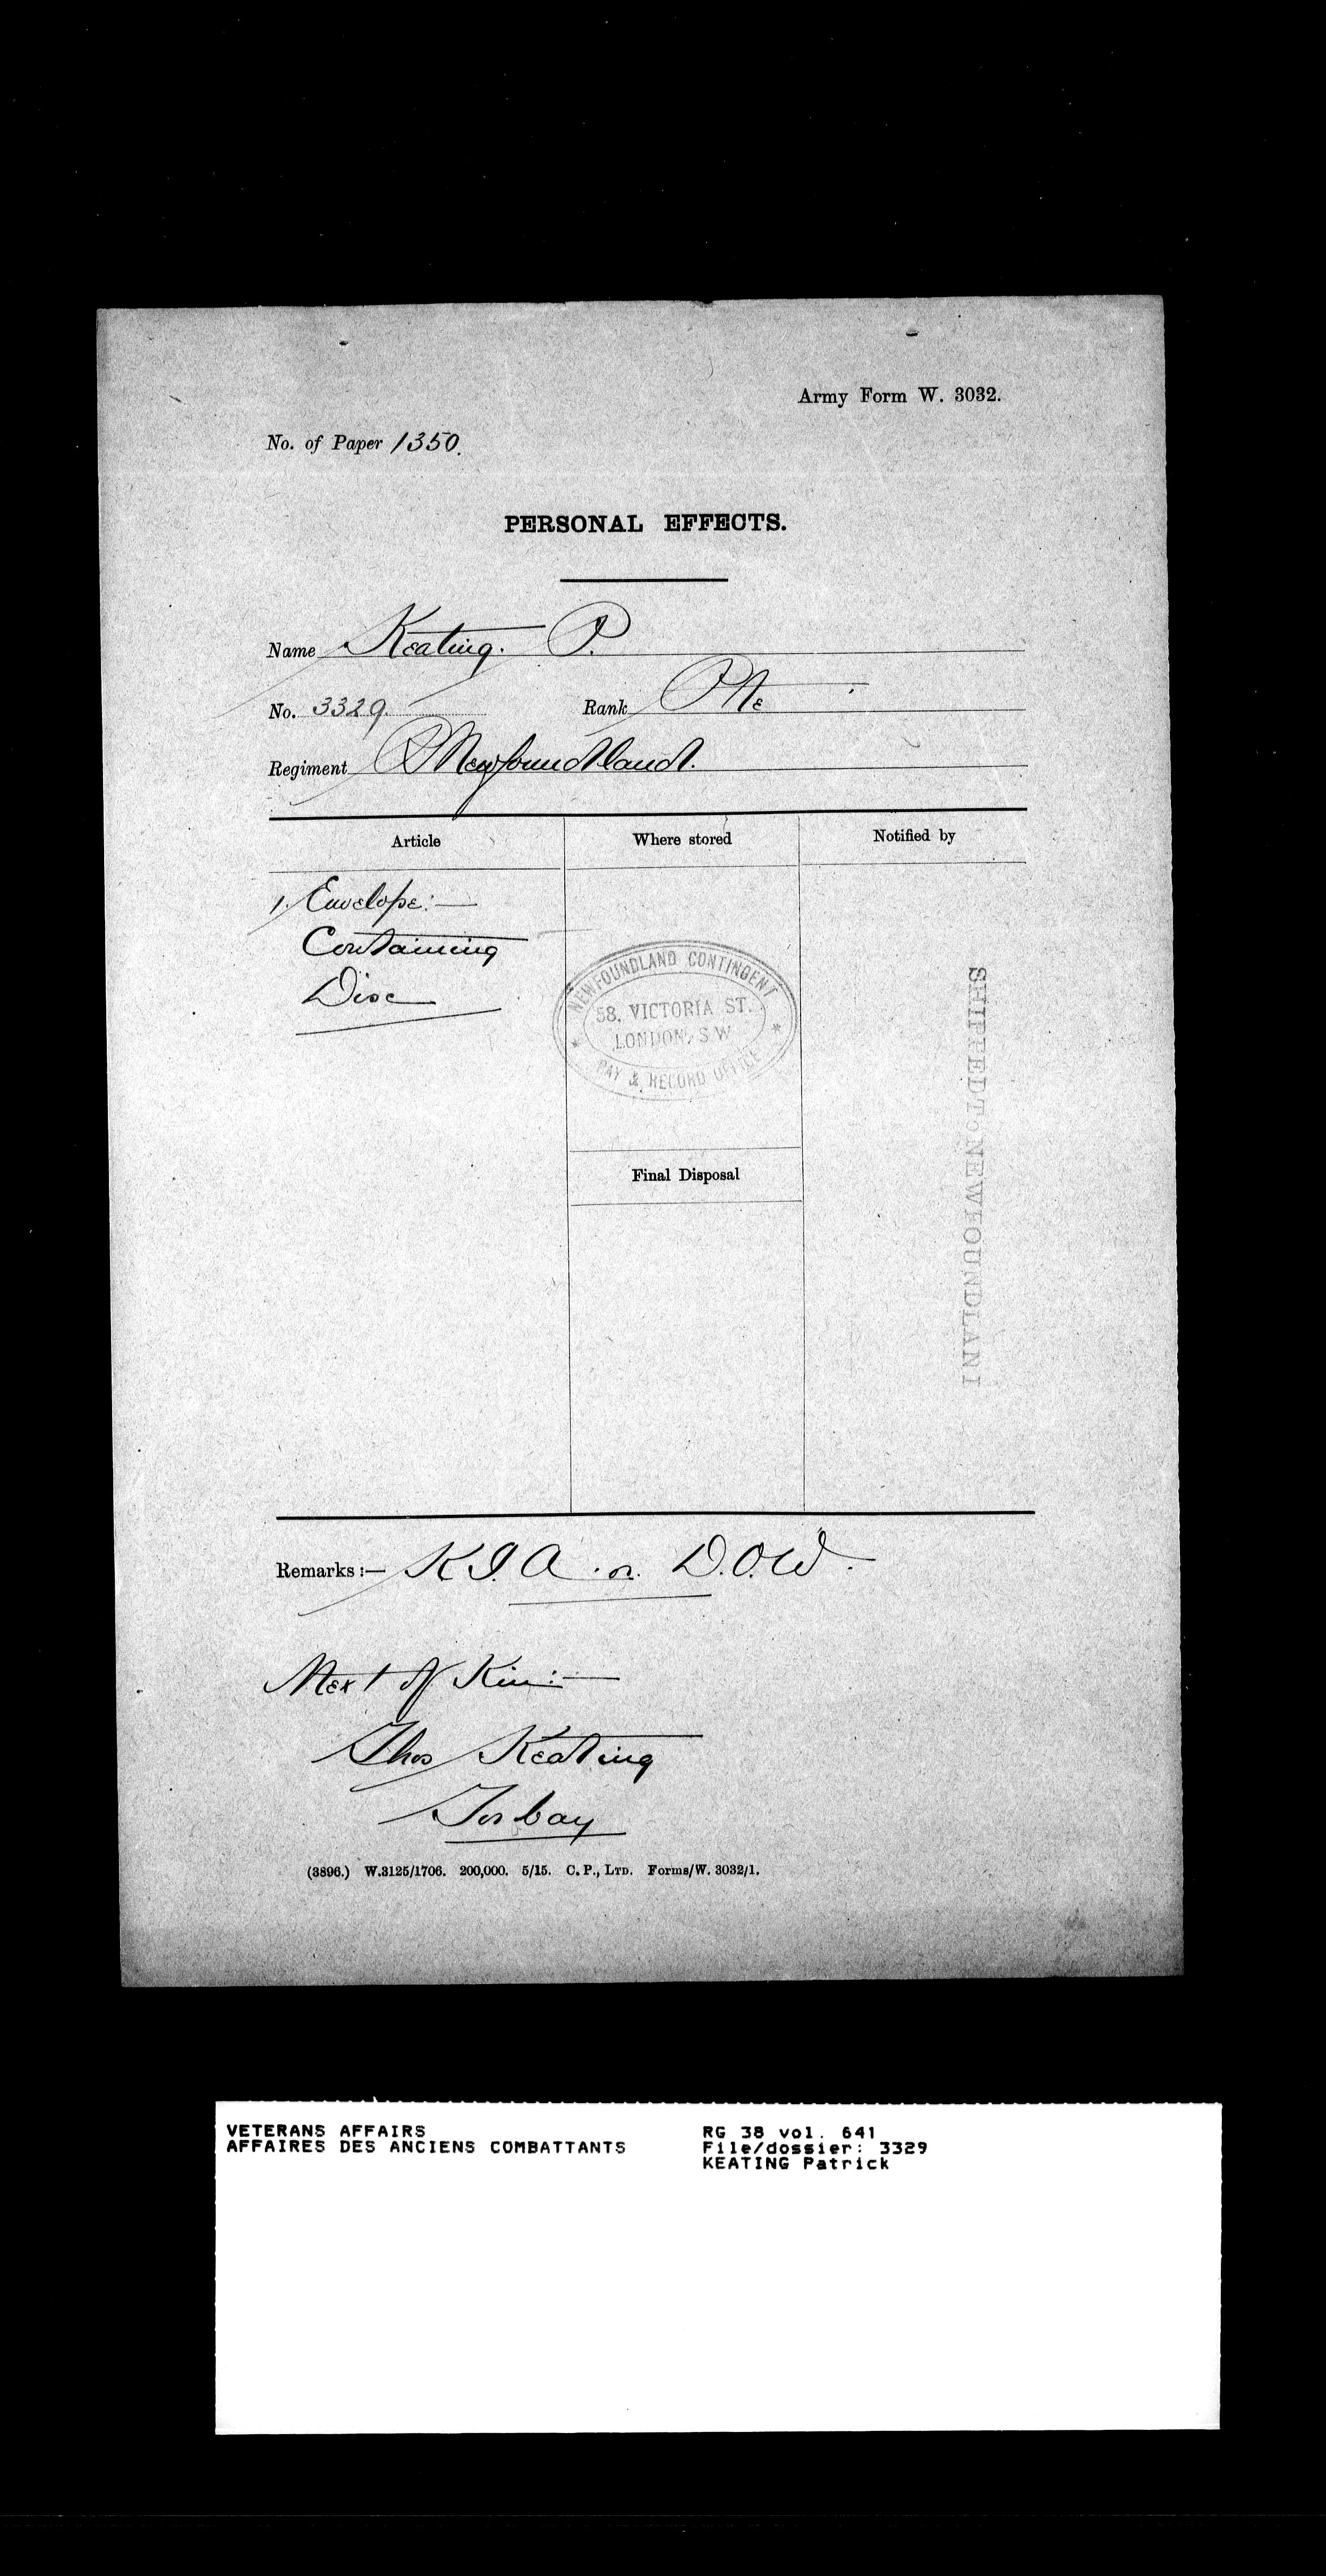 Army Form W. 3032.
No. of Paper 1350.
PERSONAL EFFECTS.
Name Keating. P.
No. 3329. Rank Pte
Regiment Newfoundland.
Article Where stored Notified by
1. Envelope:—
Containing
Disc
NEWFOUNDLAND CONTINGENT
58, VICTORIA ST.
LONDON, S.W
PAY & RECORD OFFICE
SHIPPED To NEWFOUNDLAND
Final Disposal
Remarks:— K.I.A. or D.O.W.
Next of Kin:—
Thos Keating
Torbay
(3896.) W.3125/1706. 200,000. 5/15. C. P., LTD. Forms/W. 3032/1.
VETERANS AFFAIRS RG 38 vol. 641
AFFAIRES DES ANCIENS COMBATTANTS File/dossier: 3329
KEATING Patrick